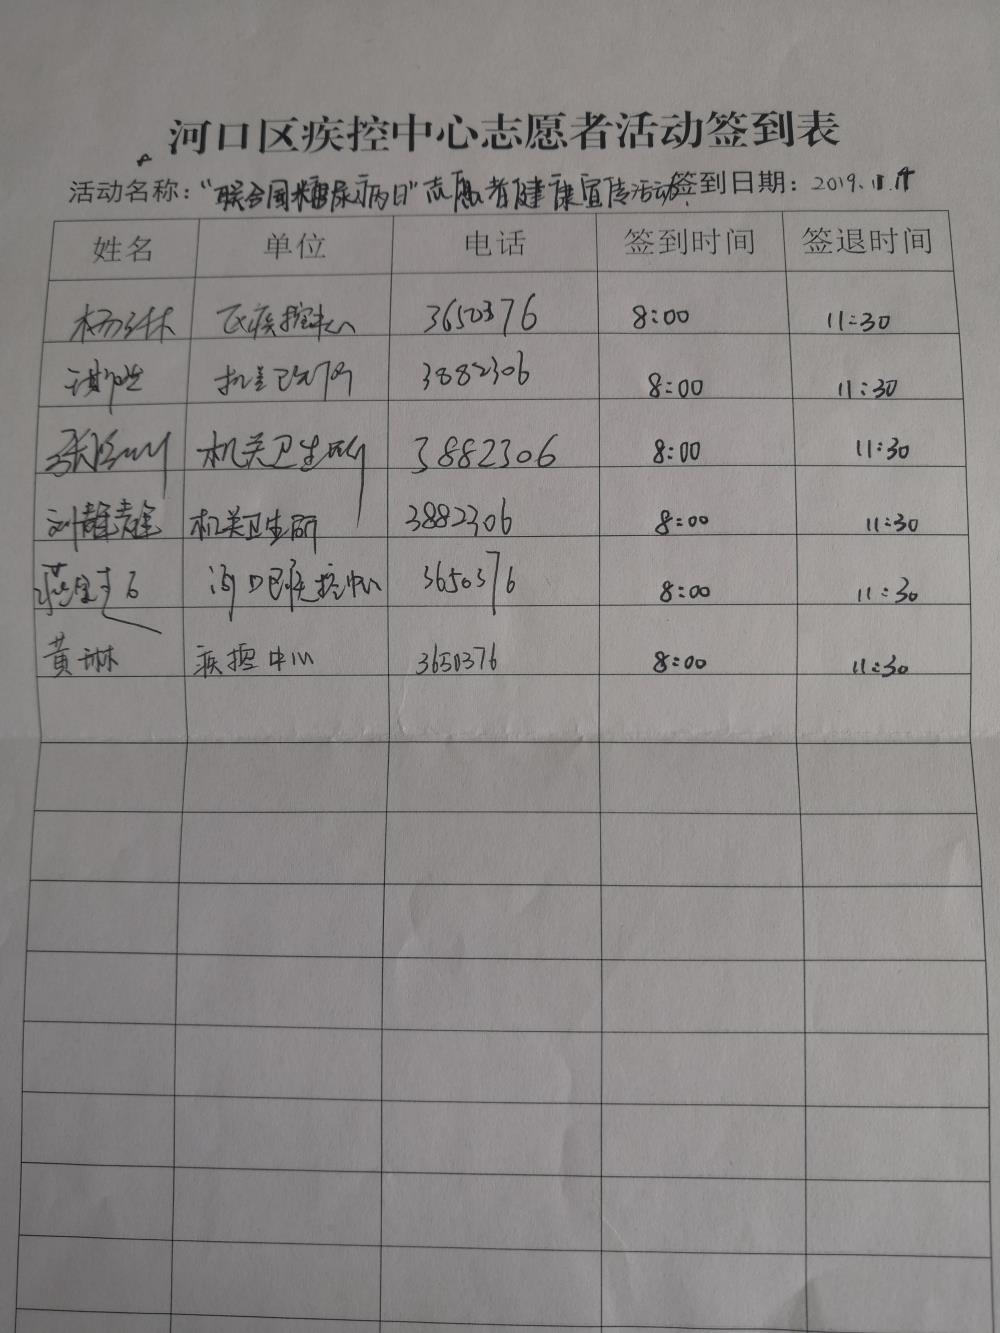 河口区疾控中心志愿者活动签到表
活动名称:“联合国糖尿病日”志愿者健康宣传活动 签到日期: 2019.11.14
姓名 单位 电话 签到时间 签退时间
区疾控中心 3650376 8:00 11:30
机关卫生所 3882306 8:00 11:30
机关卫生所 3882306 8:00 11:30
刘静 机关卫生所 3882306 8:00 11:30
河口区疾控中心 3650376 8:00 11:30
黄琳 疾控中心 3650376 8:00 11:30